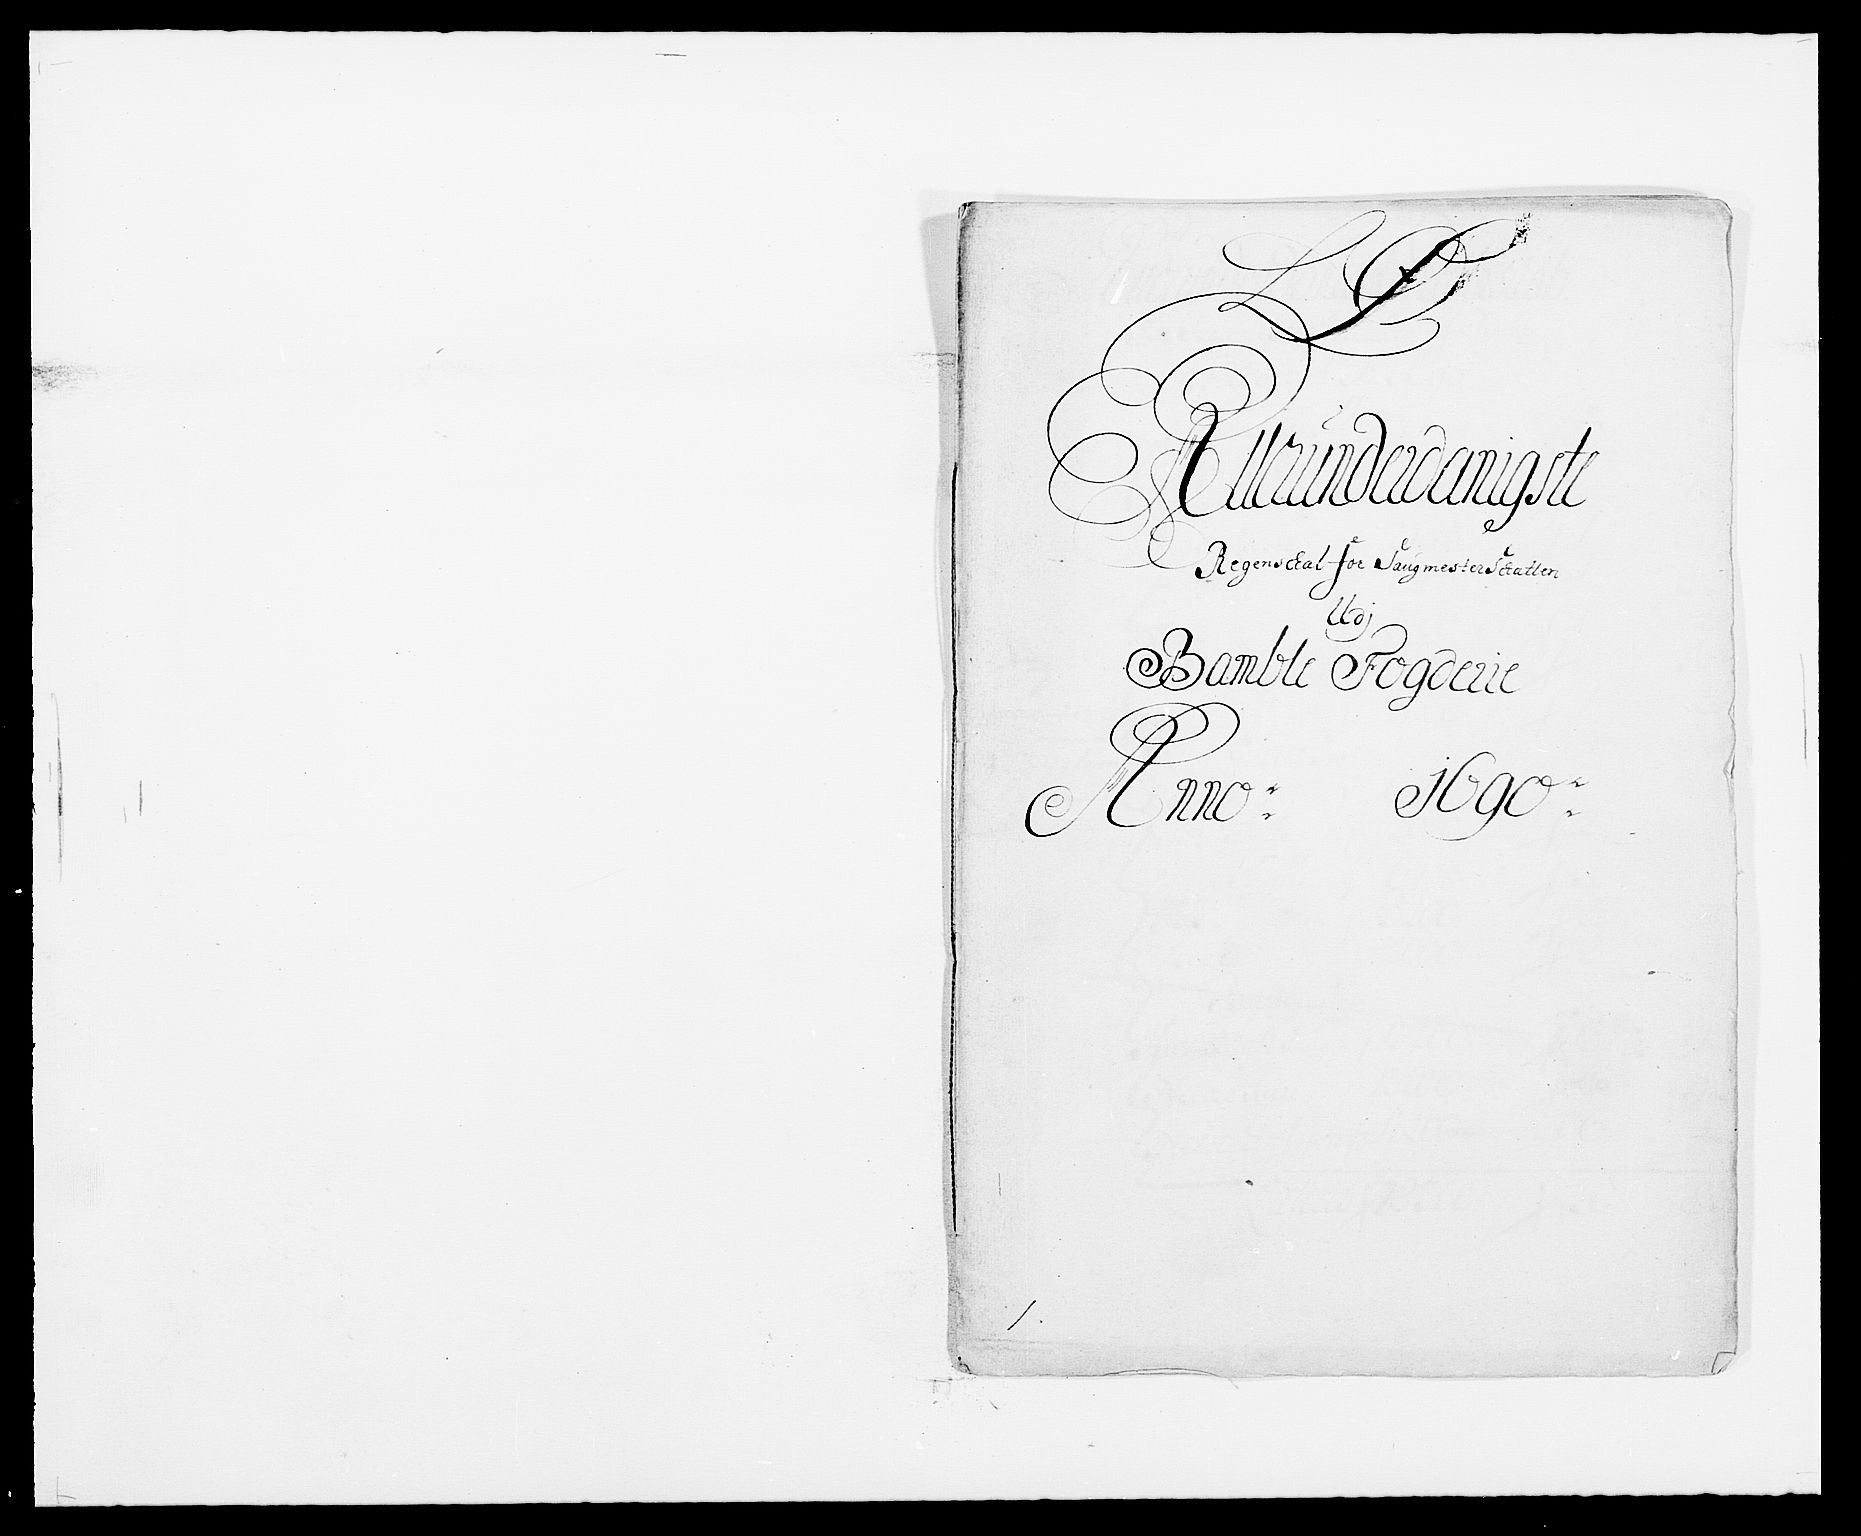 Allerunderdanigste
Regenschal for Saugmester Schatten
Udj
Bamble Fogderie
Anno 1690
1.